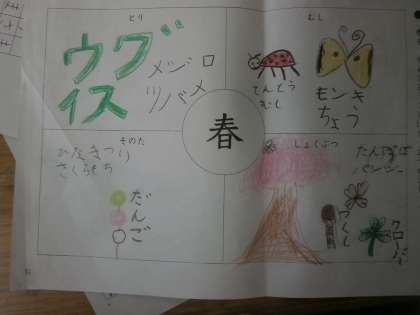 とり
ウグ
イス
メジロ
ツバメ
むし
てんとう
むし
モンキ
ちょう
春
そのた
ひなまつり
さくらもち
だんご
しょくぶつ
たんぽぽ
パンジー
つくし
クローバー